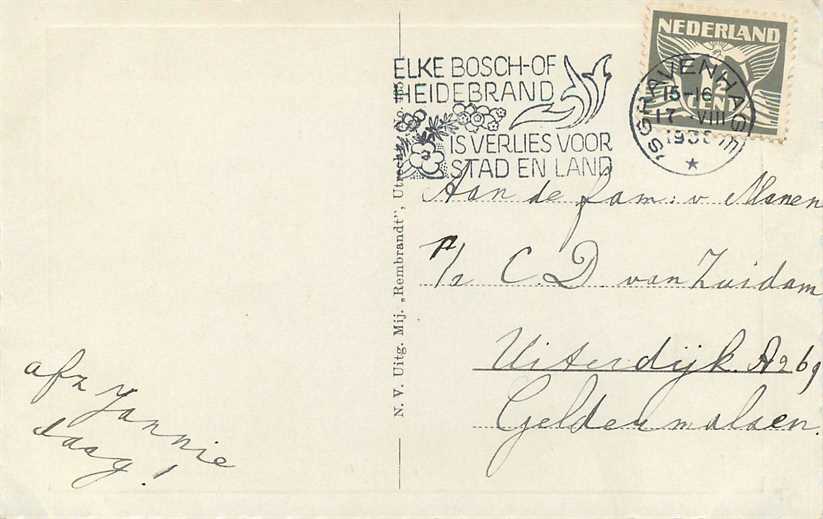 NEDERLAND
CENT
'S GRAVENHAGE
15-16
17 VIII
ELKE BOSCH-OF
HEIDEBRAND
IS VERLIES VOOR
STAD EN LAND
N. V. Uitg. Mij. „Rembrandt", Utrecht No.
Aan de fam: v Manen
p/a C. D. van Zuidam
Uiterdijk. A269
Geldermalsen.
afz Jannie
daag!